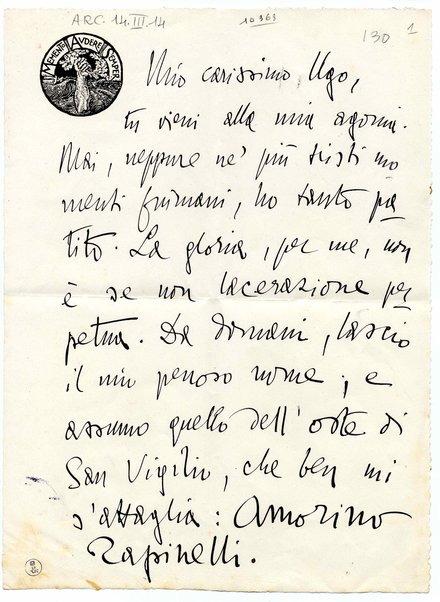 ARC. 14.III.14
10363
130
1
MEMENTO AUDERE SEMPER
Mio carissimo Ugo,
tu vieni alla mia agonia.
Mai, neppure ne' più tristi mo
menti fiumani, ho tanto pa
tito. La gloria, per me, non
è se non lacerazione per
petua. Da domani, lascio
il mio penoso nome; e
assumo quello dell'oste di
San Vigilio, che ben mi
s'attaglia: Amorino
Rapinelli.